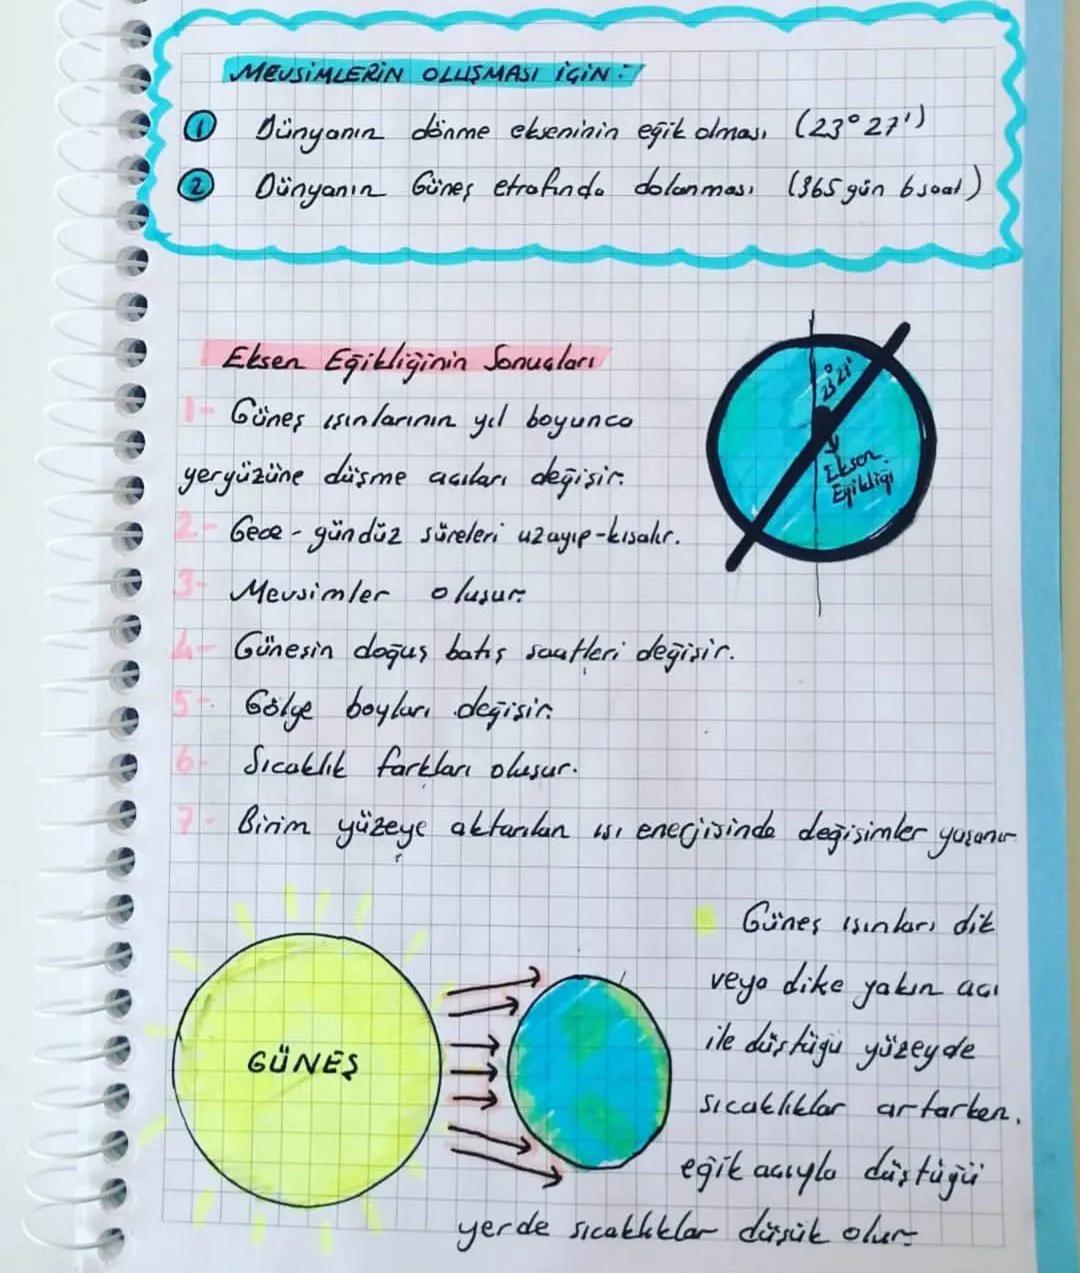 MEVSİMLERİN OLUŞMASI İÇİN :
1 Dünyanın dönme ekseninin eğik olması (23° 27')
2 Dünyanın Güneş etrafında dolanması (365 gün 6 saat)
Eksen Eğikliğinin Sonuçları
1- Güneş ışınlarının yıl boyunca
yeryüzüne düşme açıları değişir.
2- Gece - gündüz süreleri uzayıp-kısalır.
3- Mevsimler oluşur.
4- Güneşin doğuş batış saatleri değişir.
5- Gölge boyları değişir.
6- Sıcaklık farkları oluşur.
7- Birim yüzeye aktarılan ısı enerjisinde değişimler yaşanır
23° 27'
Eksen
Eğikliği
GÜNEŞ
Güneş ışınları dik
veya dike yakın açı
ile düştüğü yüzeyde
sıcaklıklar artarken,
eğik açıyla düştüğü
yerde sıcaklıklar düşük olur.